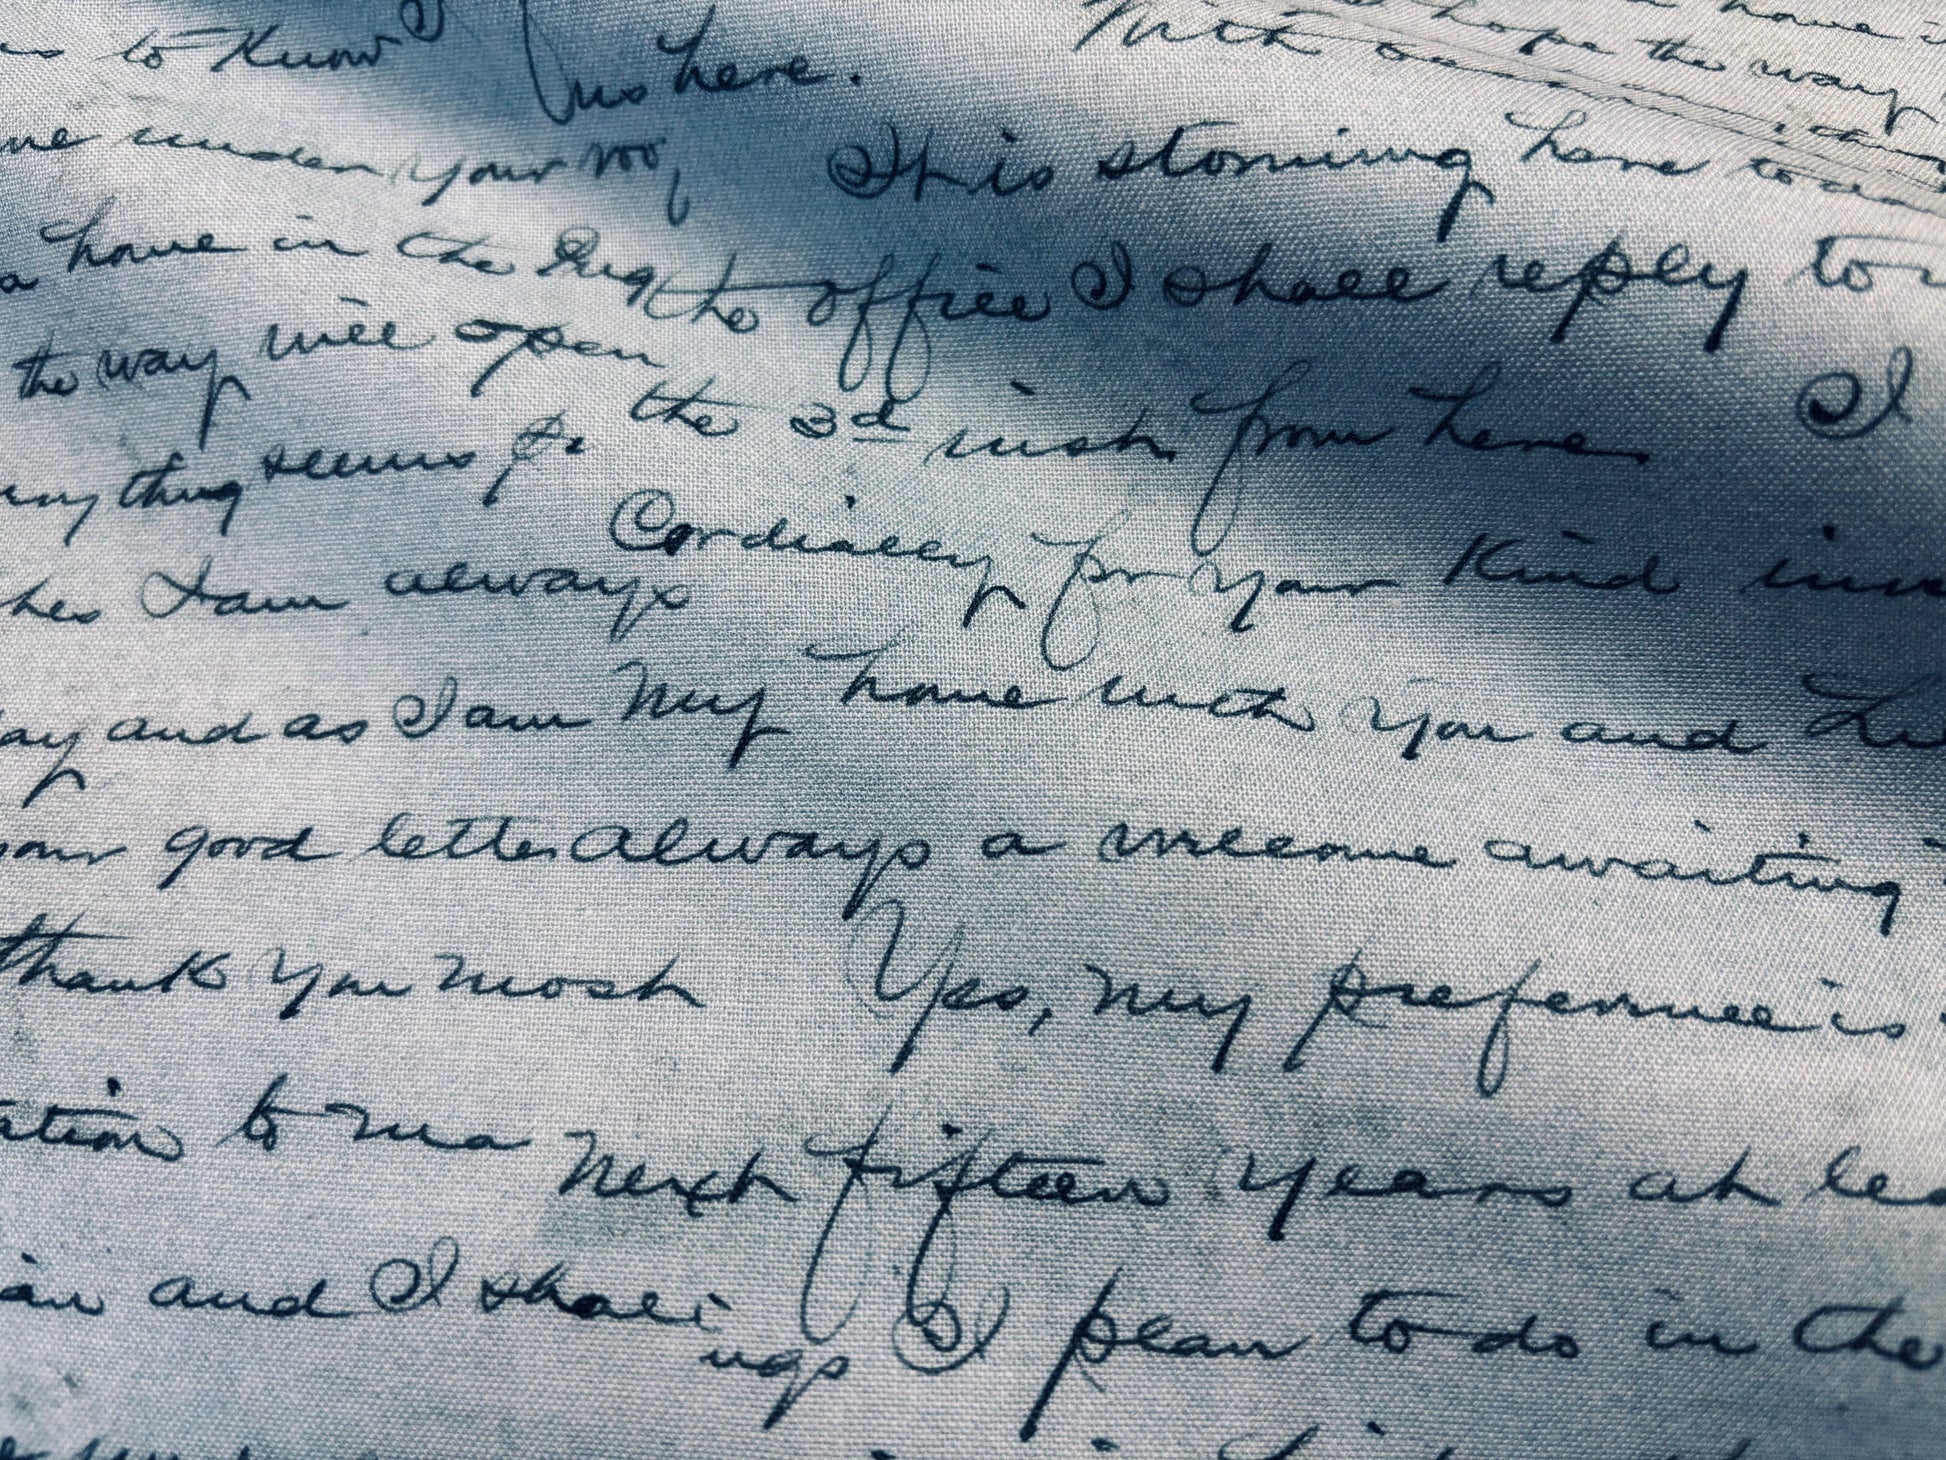 to know us here. With
hope the way
me under your roof It is storming here today
a home in the the office I shall reply to
the way will open the 3d inst from here I
anything seems to Cordially for your kind
I am always
day and as I am my home with you and
your good letter always a welcome awaiting
thank you most Yes, my preference is
to me next fifteen years at
and I shall ings I plan to do in the